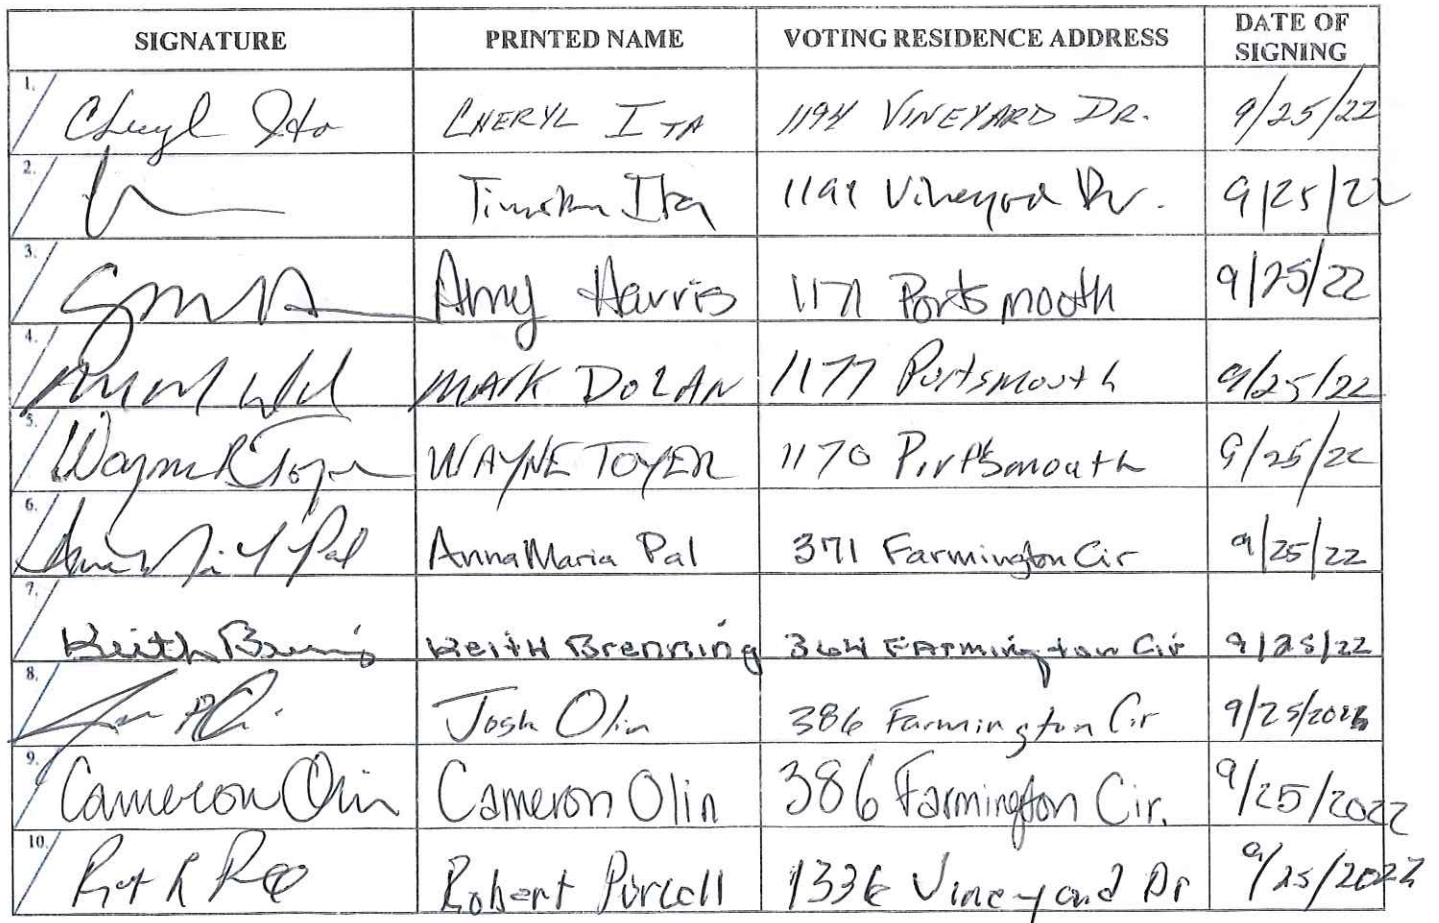 SIGNATURE PRINTED NAME VOTING RESIDENCE ADDRESS DATE OF SIGNING
1. Cheryl Ita CHERYL ITA 1194 VINEYARD DR. 9/25/22
2. Timothy Ita 1194 Vineyard Dr. 9/25/22
3. Amy Harris 1171 Portsmouth 9/25/22
4. MARK DOLAN 1177 Portsmouth 9/25/22
5. Wayne R Toyer WAYNE TOYER 1170 Portsmouth 9/25/22
6. Pal AnnaMaria Pal 371 Farmington Cir 9/25/22
7. Keith KeitH Brenning 364 FArmington Cir 9/25/22
8. Josh Olin 386 Farmington Cir 9/25/2022
9. Cameron Olin Cameron Olin 386 Farmington Cir. 9/25/2022
10. Robert Purcell 1336 Vineyard Dr 9/25/2022